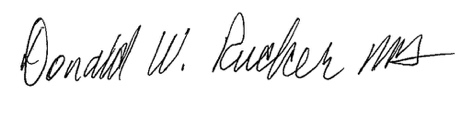 Donald W. Rucker MD